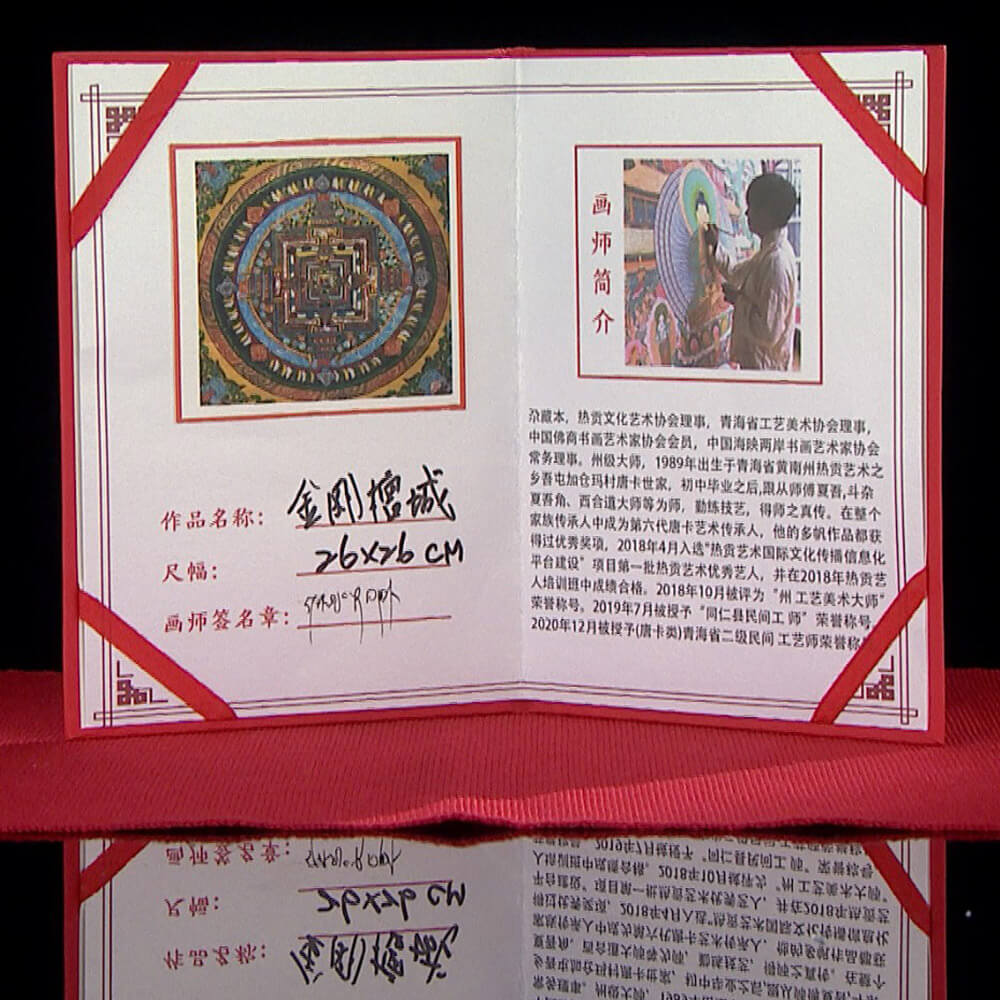 作品名称：金刚檀城
尺幅：26×26 CM
画师签名章：
画师简介
尕藏本，热贡文化艺术协会理事，青海省工艺美术协会理事，
中国佛商书画艺术家协会会员，中国海映两岸书画艺术家协会
常务理事。州级大师，1989年出生于青海省黄南州热贡艺术之
乡吾屯加仓玛村唐卡世家，初中毕业之后,跟从师傅夏吾,斗杂
夏吾角、西合道大师等为师，勤练技艺，得师之真传。在整个
家族传承人中成为第六代唐卡艺术传承人，他的多帆作品都获
得过优秀奖项，2018年4月入选"热贡艺术国际文化传播信息化
平台建设"项目第一批热贡艺术优秀艺人，并在2018年热贡艺
人培训班中成绩合格。2018年10月被评为"州 工艺美术大师"
荣誉称号。2019年7月被授予"同仁县民间工 师"荣誉称号，
2020年12月被授予(唐卡类)青海省二级民间 工艺师荣誉称